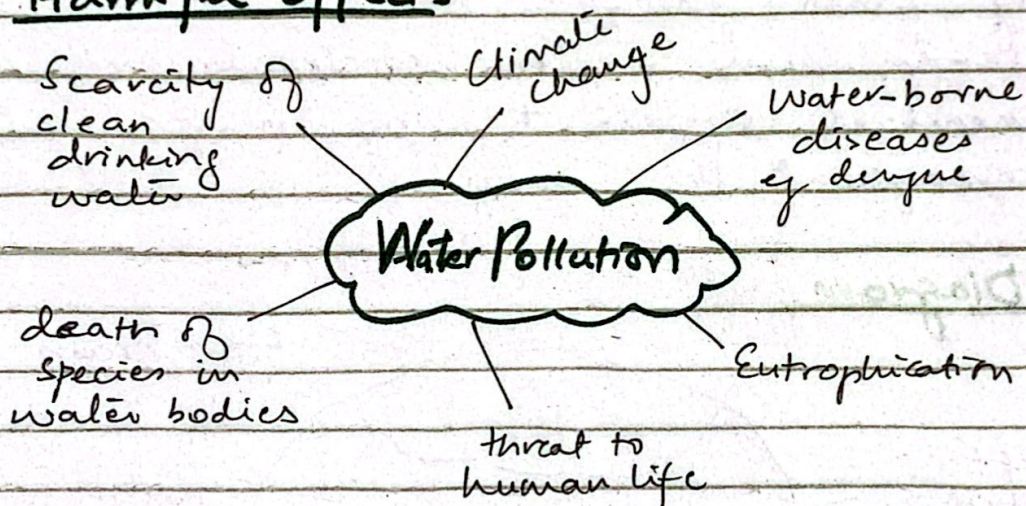 Harmful effects
Scarcity of
clean
drinking
water
Climate
change
Water-borne
diseases
eg dengue
Water Pollution
Diagram
death of
species in
water bodies
Eutrophication
threat to
human life